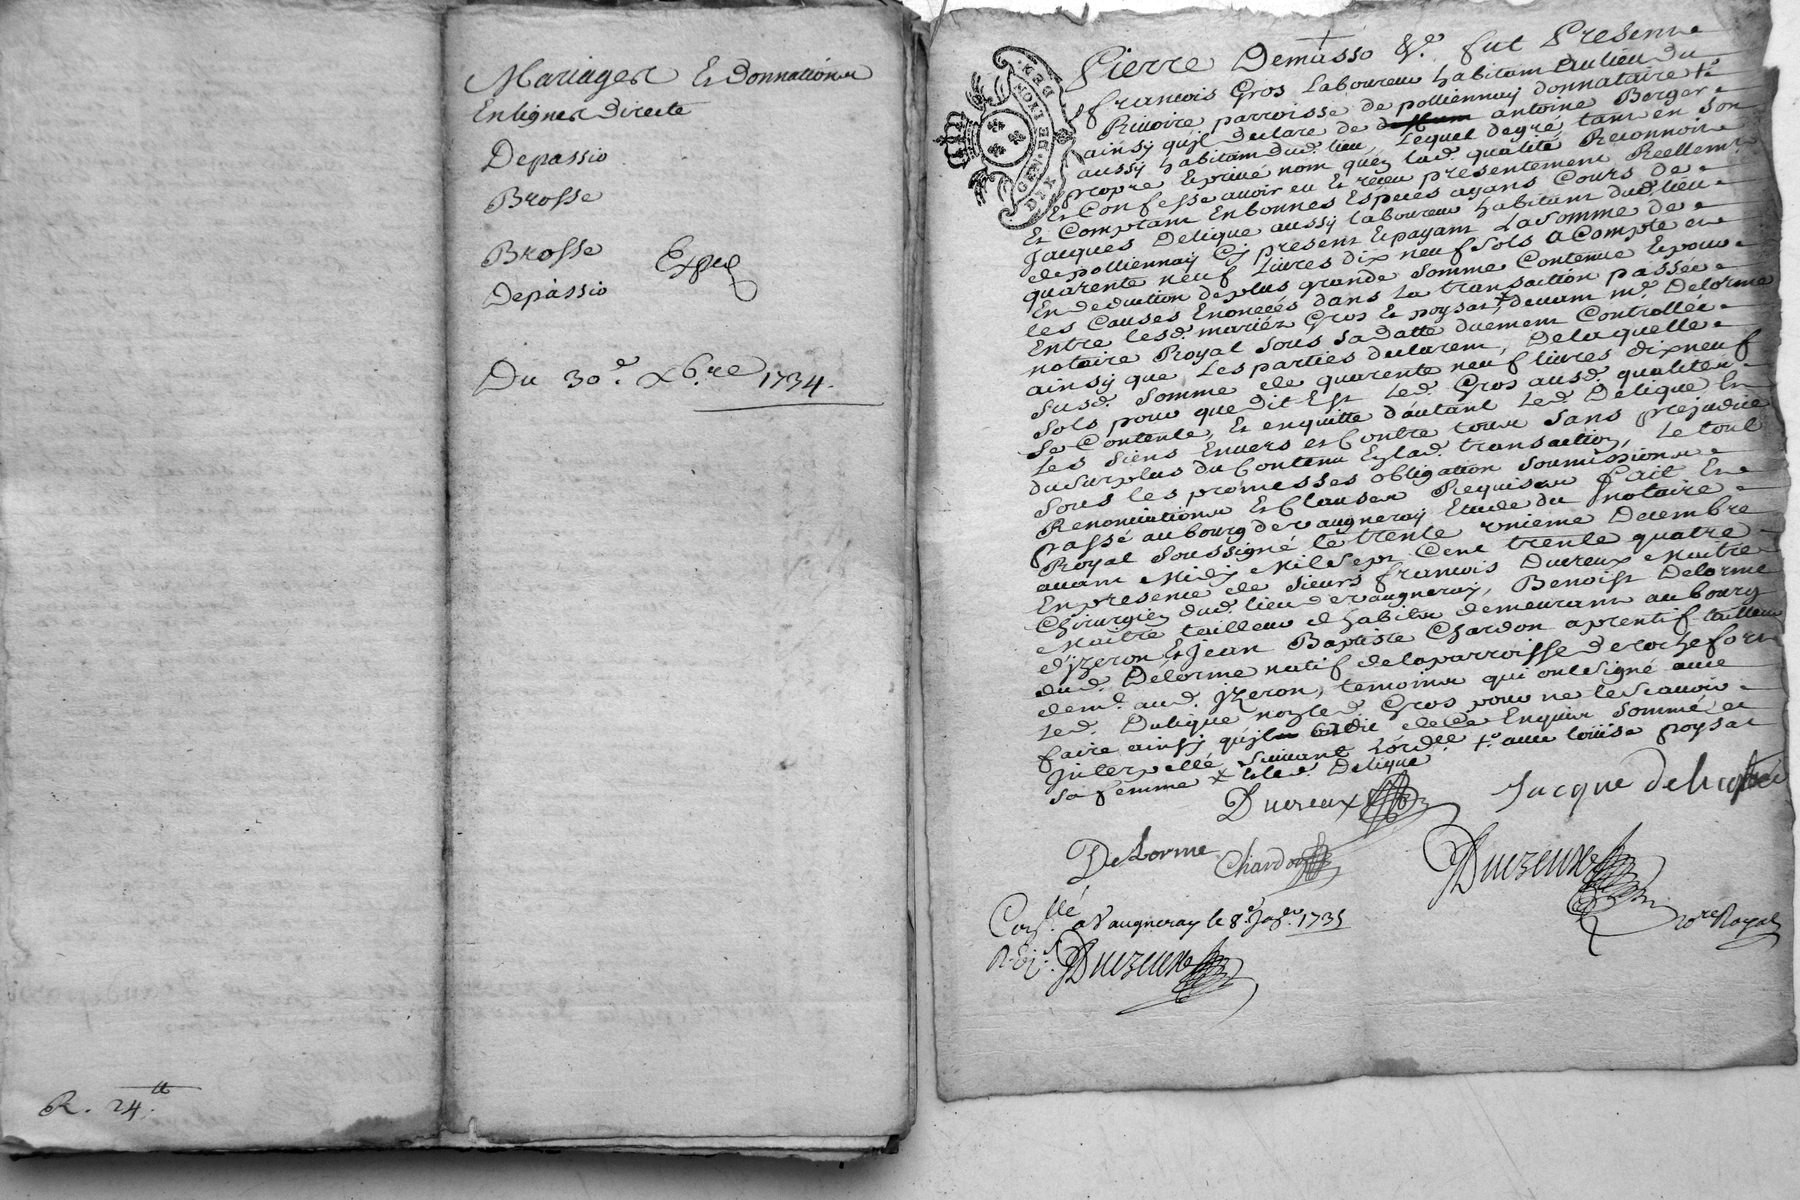 Mariages Et donnations
En ligne directe
Depassio
Brosse
Brosse
Expéd
Depassio
Du 30e. xb.re 1734.
R. 24.tt
Pierre Demasso &a. fut Présent
francois Gros Laboureur habitant Au lieu du
Rivoire parroisse de pollionnay donnataire
ainsy quil declare de antoine Berger
aussy habitant dud. lieu, Lequel degré tant en son
propre Et privé nom quen lad. qualité Reconnoit
Et Confesse avoir eu Et receu presentement Reellemt.
Et Comptant En bonnes Especes ayans Cours de
Jacques Deligue aussy laboureur habitant dud. lieu
de pollionnay Cy present Et payant La somme de
quarente neuf Livres dix neuf sols a Compte et
En deduction de plus grande somme Contenue Et pour
les Causes Enoncées dans La transaction passée
Entre lesd. mariés Gros Et poysat, devant me. Delorme
notaire Royal sous sa datte duement Controllée
ainsy que Les parties declarent, De laquelle
susd. somme de quarente neuf livres dix neuf
sols pour que dit Est Led. Gros ausd. qualités
se Contente, Et en quitte d'autant Led. Deligue Et
Les siens Envers et Contre tous sans prejudice
du surplus du Contenu En lad. transaction, Le tout
sous les promesses obligation soumissions
Renonciations Et Clauses Requises fait Et
passé au bourg de vaugneray Etude du notaire
Royal soussigné le trente unieme Decembre
avant Midy Mil sept Cent trente quatre
En presence de sieurs francois Ducreux Maitre
Chirurgien dud. lieu de vaugneray, Benoist Delorme
Maitre tailleur d'habits demeurant au bourg
d'jzeron Et Jean Baptiste Chardon aprentif tailleur
dud. Delorme natif de la parroisse de rochefort
demt. aud. jzeron, temoins qui ont signé avec
Led. Deligue non led. Gros pour ne le scavoir
faire ainsy qu'jl a dit de ce Enquis sommé et
Interpellé suivant L'ord.ce avec Louise poysat
sa femme Et led. Deligue
Ducreux
Jacque delig
DeLorme
Chardon
Ducreux
no.re Royal
Con.llé a Vaugneray le 8e. Jer. 1735
Ducreux
GEN. DE LYON